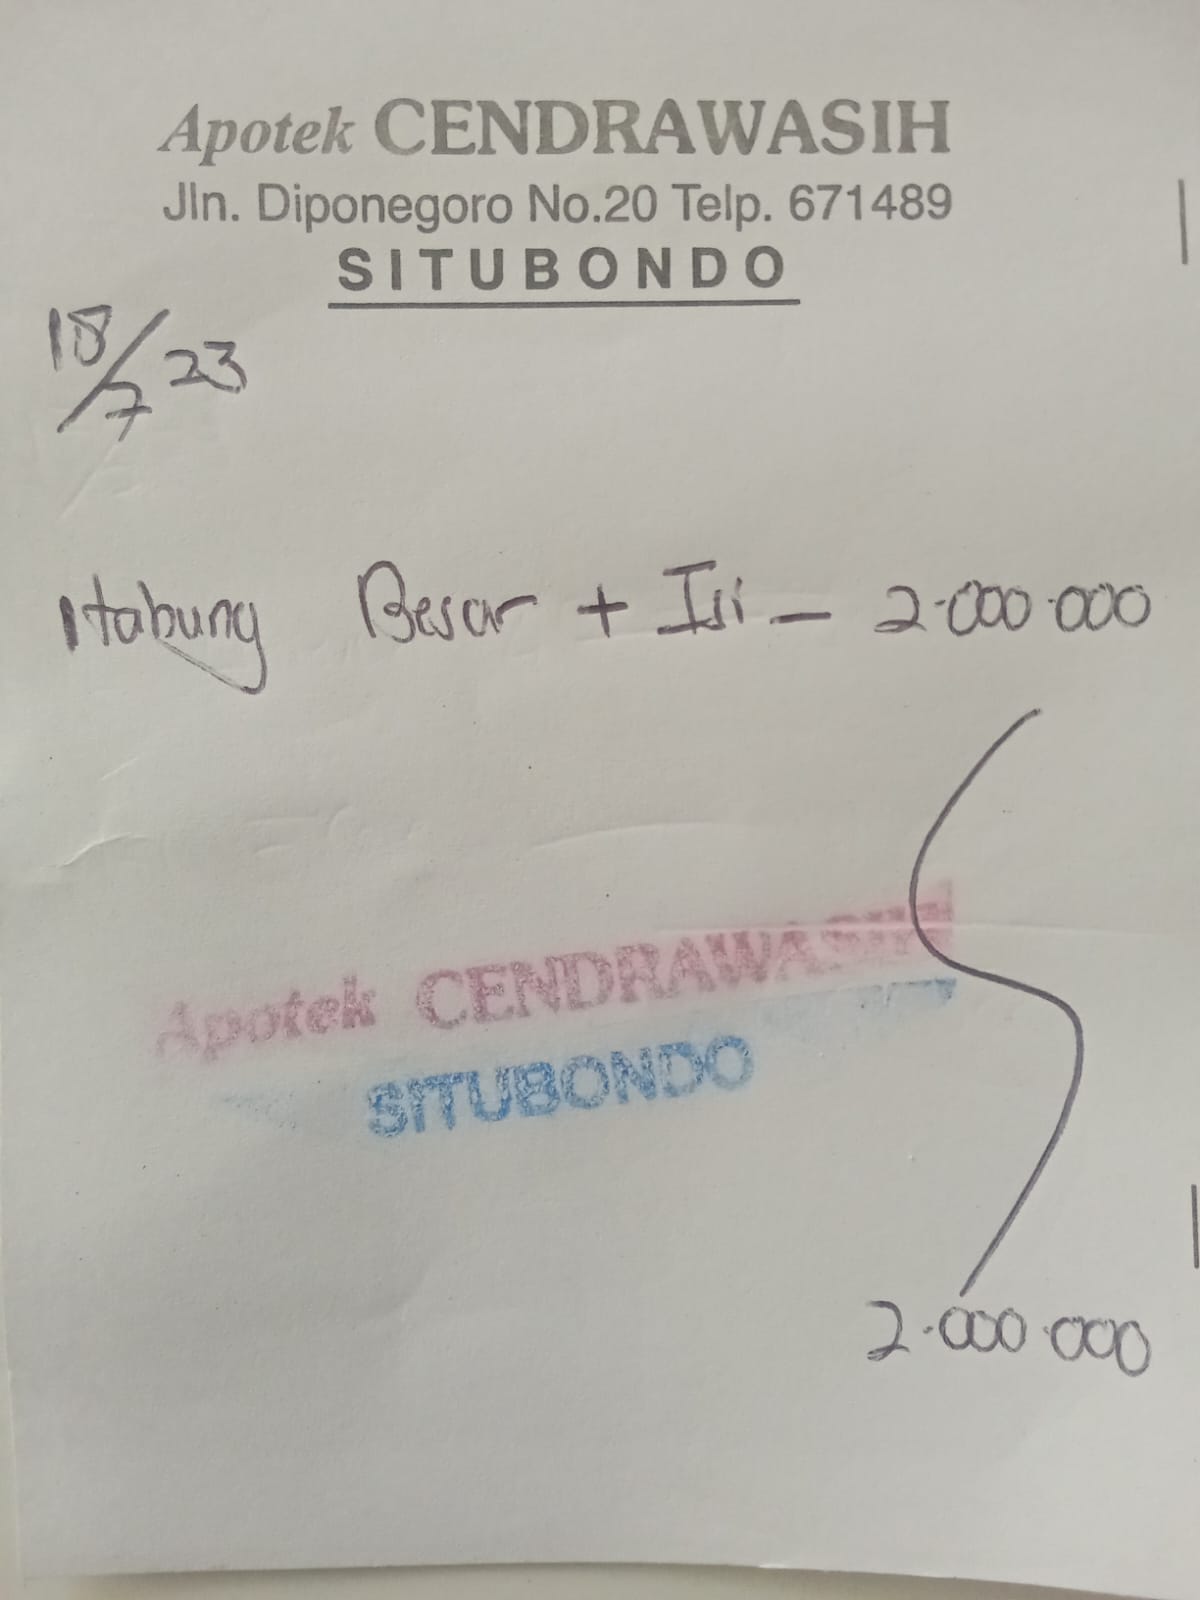 Apotek CENDRAWASIH
Jln. Diponegoro No.20 Telp. 671489
SITUBONDO
18/7 23
1 tabung Besar + Isi — 2.000.000
Apotek CENDRAWASIH
SITUBONDO
2.000.000